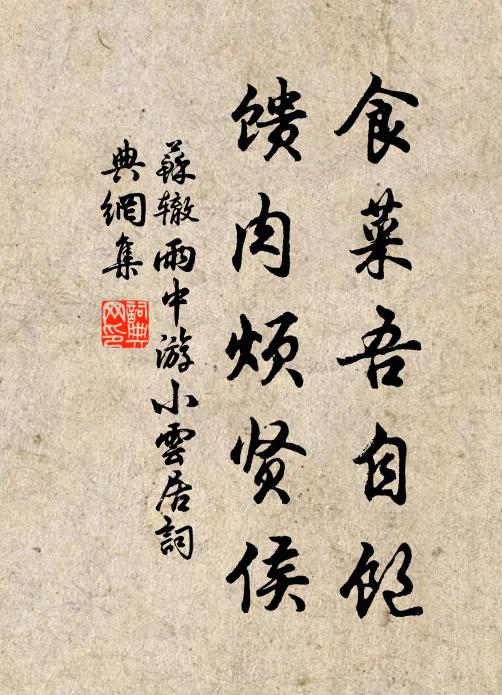 食菜吾自饱
馈肉烦贤侯
蘇辙雨中游小雲居詞
典網集
詞典
网印